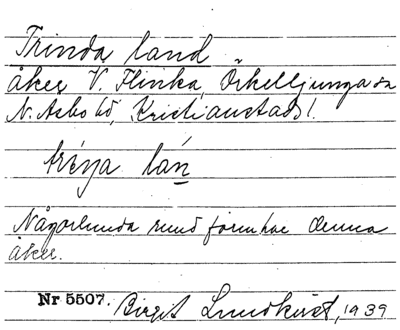 Trinda land
åker V. Flinka, Örkelljunga sn
N. Åsbo hd, Kristianstads l.
lán
Någorlunda rund form har denna
åker.
Nr 5507. Birgit Lundkvist, 1939